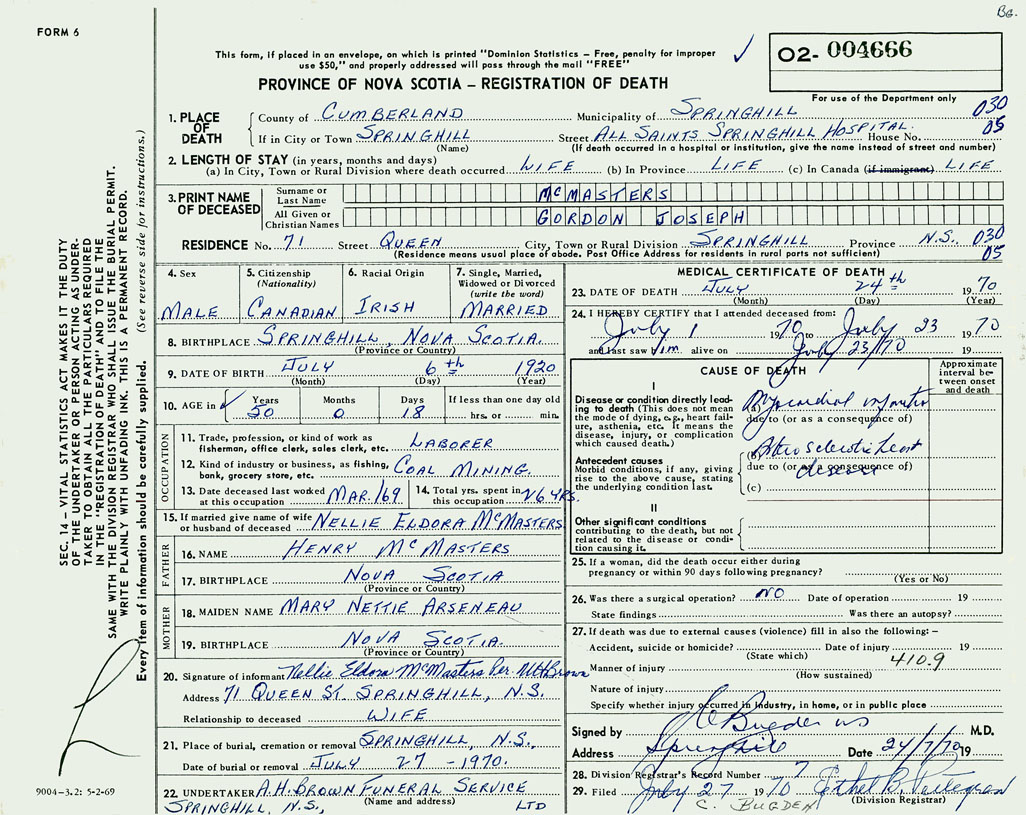 Bg.
FORM 6
This form, if placed in an envelope, on which is printed "Dominion Statistics – Free, penalty for improper
use $50," and properly addressed will pass through the mail "FREE"
✓
O2- 004666
PROVINCE OF NOVA SCOTIA – REGISTRATION OF DEATH
For use of the Department only
1. PLACE OF DEATH
County of CUMBERLAND Municipality of SPRINGHILL 030
If in City or Town SPRINGHILL Street ALL SAINTS SPRINGHILL HOSPITAL. House No. 05
(Name) (If death occurred in a hospital or institution, give the name instead of street and number)
2. LENGTH OF STAY (in years, months and days)
(a) In City, Town or Rural Division where death occurred LIFE (b) In Province LIFE (c) In Canada (if immigrant) LIFE
3. PRINT NAME OF DECEASED
Surname or Last Name McMASTERS
All Given or Christian Names GORDON JOSEPH
RESIDENCE No. 71 Street QUEEN City, Town or Rural Division SPRINGHILL Province N.S. 030
(Residence means usual place of abode. Post Office Address for residents in rural parts not sufficient) 05
SEC. 14 – VITAL STATISTICS ACT MAKES IT THE DUTY
OF THE UNDERTAKER OR PERSON ACTING AS UNDER-
TAKER TO OBTAIN ALL THE PARTICULARS REQUIRED
IN THE "REGISTRATION OF DEATH" AND TO FILE THE
SAME WITH THE DIVISION REGISTRAR WHO SHALL ISSUE THE BURIAL PERMIT.
WRITE PLAINLY WITH UNFADING INK. THIS IS A PERMANENT RECORD.
Every item of information should be carefully supplied. (See reverse side for instructions.)
4. Sex
MALE
5. Citizenship
(Nationality)
CANADIAN
6. Racial Origin
IRISH
7. Single, Married,
Widowed or Divorced
(write the word)
MARRIED
8. BIRTHPLACE SPRINGHILL, NOVA SCOTIA.
(Province or Country)
9. DATE OF BIRTH JULY 6th 1920
(Month) (Day) (Year)
10. AGE in ✓ Years Months Days If less than one day old
50 0 18 hrs. or min.
OCCUPATION
11. Trade, profession, or kind of work as
fisherman, office clerk, sales clerk, etc. LABORER
12. Kind of industry or business, as fishing,
bank, grocery store, etc. COAL MINING.
13. Date deceased last worked
at this occupation MAR./69
14. Total yrs. spent in
this occupation 26 YRS.
15. If married give name of wife
or husband of deceased NELLIE ELDORA McMASTERS
FATHER
16. NAME HENRY McMASTERS
17. BIRTHPLACE NOVA SCOTIA
(Province or Country)
MOTHER
18. MAIDEN NAME MARY NETTIE ARSENEAU
19. BIRTHPLACE NOVA SCOTIA.
(Province or Country)
20. Signature of informant Nellie Eldora McMasters per. Brown
Address 71 QUEEN ST. SPRINGHILL, N.S.
Relationship to deceased WIFE
21. Place of burial, cremation or removal SPRINGHILL, N.S.,
Date of burial or removal JULY 27 - 1970.
22. UNDERTAKER A.H. BROWN FUNERAL SERVICE
(Name and address)
SPRINGHILL, N.S., LTD
9004-3.2: 5-2-69
MEDICAL CERTIFICATE OF DEATH
23. DATE OF DEATH JULY 24th 1970
(Month) (Day) (Year)
24. I HEREBY CERTIFY that I attended deceased from:
July 1 1970 to July 23 1970
and last saw him alive on July 23/70 19
CAUSE OF DEATH
Approximate
interval be-
tween onset
and death
I
Disease or condition directly lead-
ing to death (This does not mean
the mode of dying, e.g., heart fail-
ure, asthenia, etc. It means the
disease, injury, or complication
which caused death.)
(a) Myocardial infarction
due to (or as a consequence of)
Antecedent causes
Morbid conditions, if any, giving
rise to the above cause, stating
the underlying condition last.
(b) heart
due to (or as a consequence of)
disease
(c)
II
Other significant conditions
contributing to the death, but not
related to the disease or condi-
tion causing it.
25. If a woman, did the death occur either during
pregnancy or within 90 days following pregnancy?
(Yes or No)
26. Was there a surgical operation? NO Date of operation 19
State findings Was there an autopsy?
27. If death was due to external causes (violence) fill in also the following: –
Accident, suicide or homicide? Date of injury 19
(State which) 410.9
Manner of injury
(How sustained)
Nature of injury
Specify whether injury occurred in industry, in home, or in public place
Signed by Bugden M.D.
Address Springhill Date 24/7/70 19
28. Division Registrar's Record Number 7
29. Filed July 27 1970 Ethel B.
(Division Registrar)
C. BUGDEN